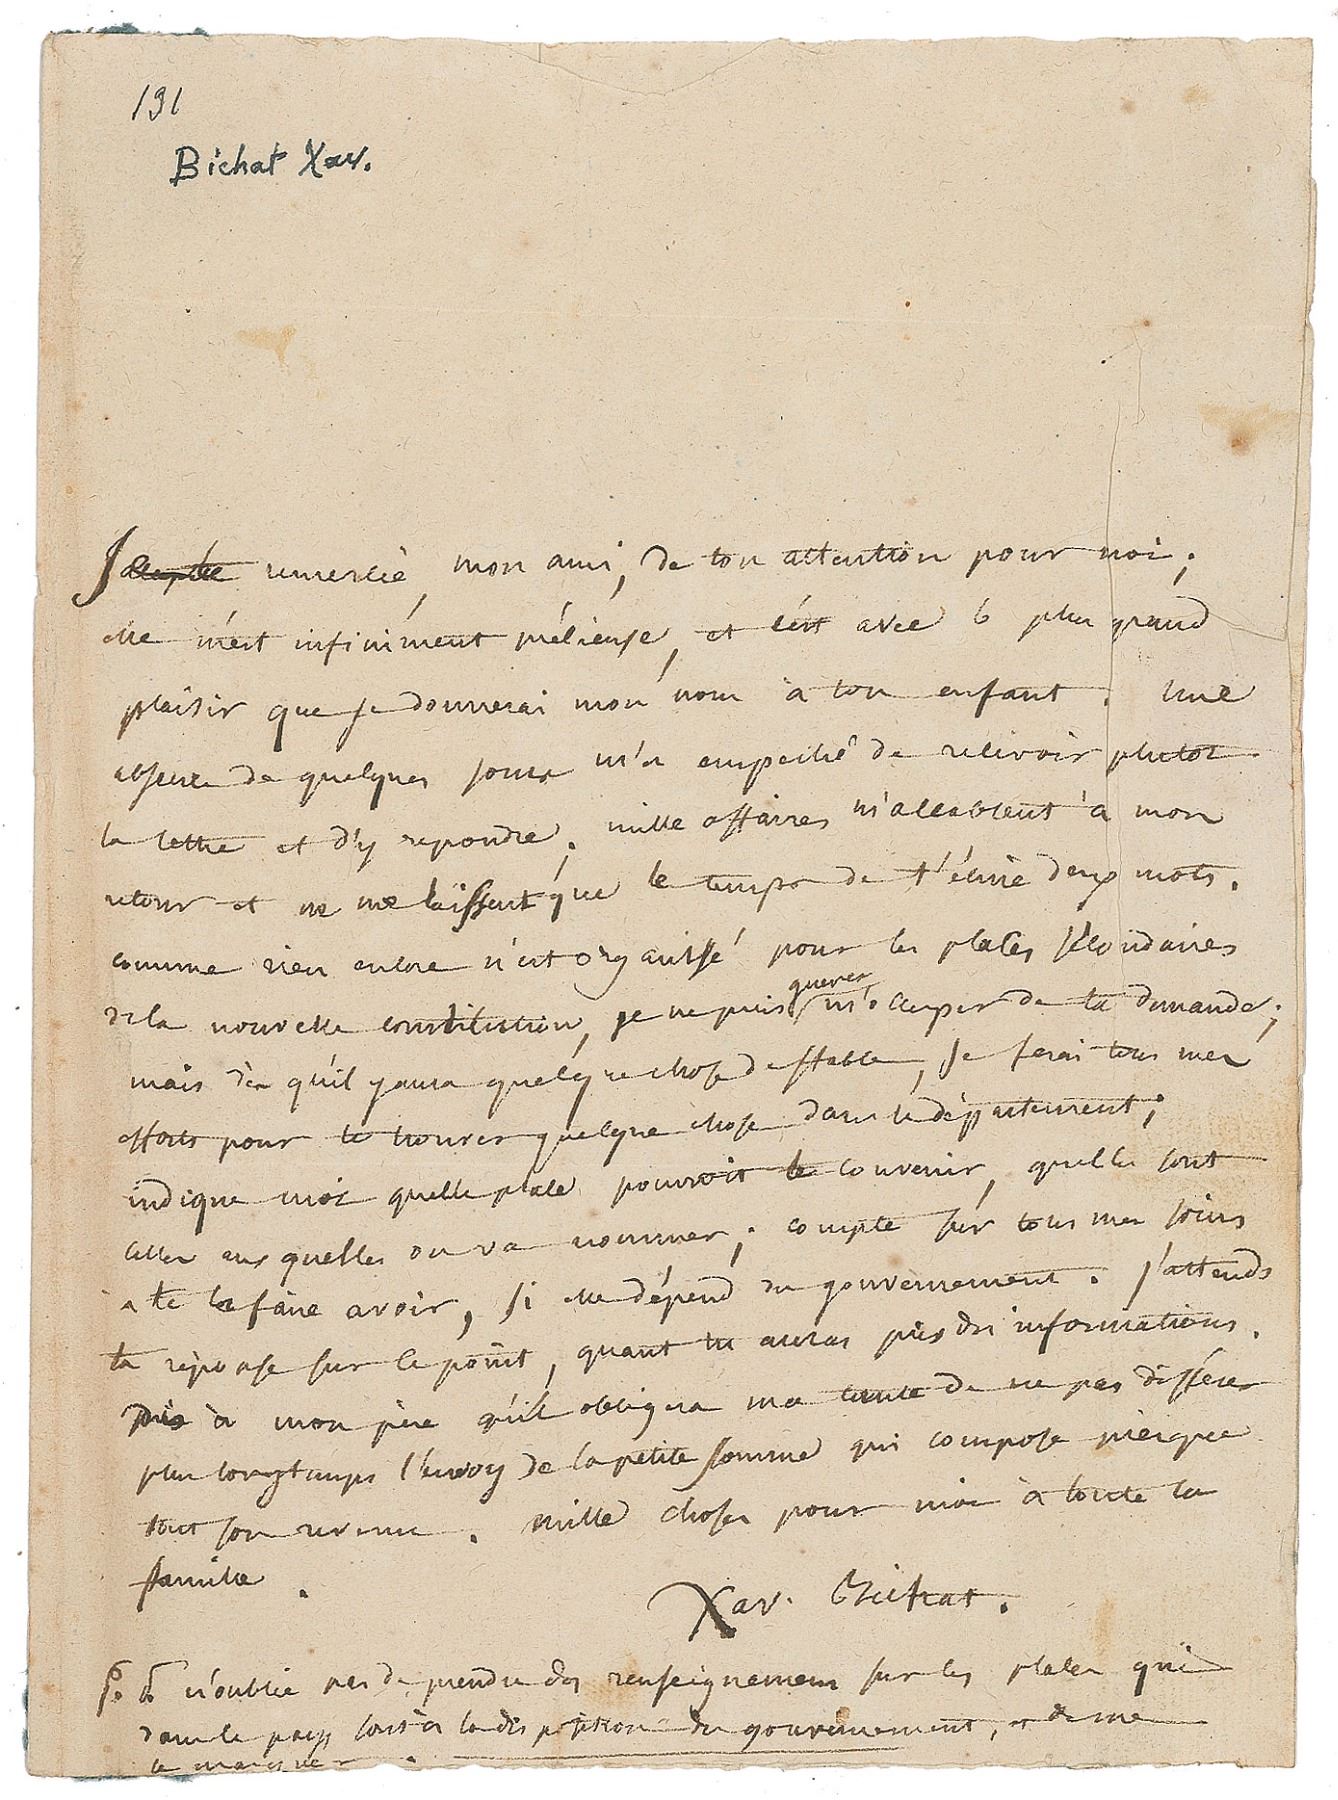 191
Bichat Xav.
Je te remercie, mon ami, de ton attention pour moi;
elle m'est infiniment précieuse, et c'est avec le plus grand
plaisir que je donnerai mon nom à ton enfant. une
absence de quelques jours m'a empeché de recevoir plutot
ta lettre et d'y repondre. mille affaires m'accablent à mon
retour et ne me laissent que le temps de t'écrire deux mots.
comme rien encore n'est organissé pour les places secondaires
de la nouvelle constitution, je ne puis gueres m'occuper de ta demande;
mais dès qu'il y aura quelque chose de stable, je ferai tous mes
efforts pour te trouver quelque chose dans le département;
indique moi quelle place pourroit te convenir, quelles sont
celles aux quelles on va nommer; compte sur tous mes soins
a te la faire avoir, si elle dépend du gouvernement. j'attends
ta réponse sur ce point, quant tu auras pris des informations.
dis à mon père qu'il obligera ma tante de ne pas différer
plus longtemps l'envoy de la petite somme qui compose presque
tout son revenu. mille choses pour moi à toute la
famille.
Xav. Bichat.
P. S. n'oublie pas de prendre des renseignemens sur les places qui
dans le pays sont à la disposition du gouvernement, et de me
le marquer.